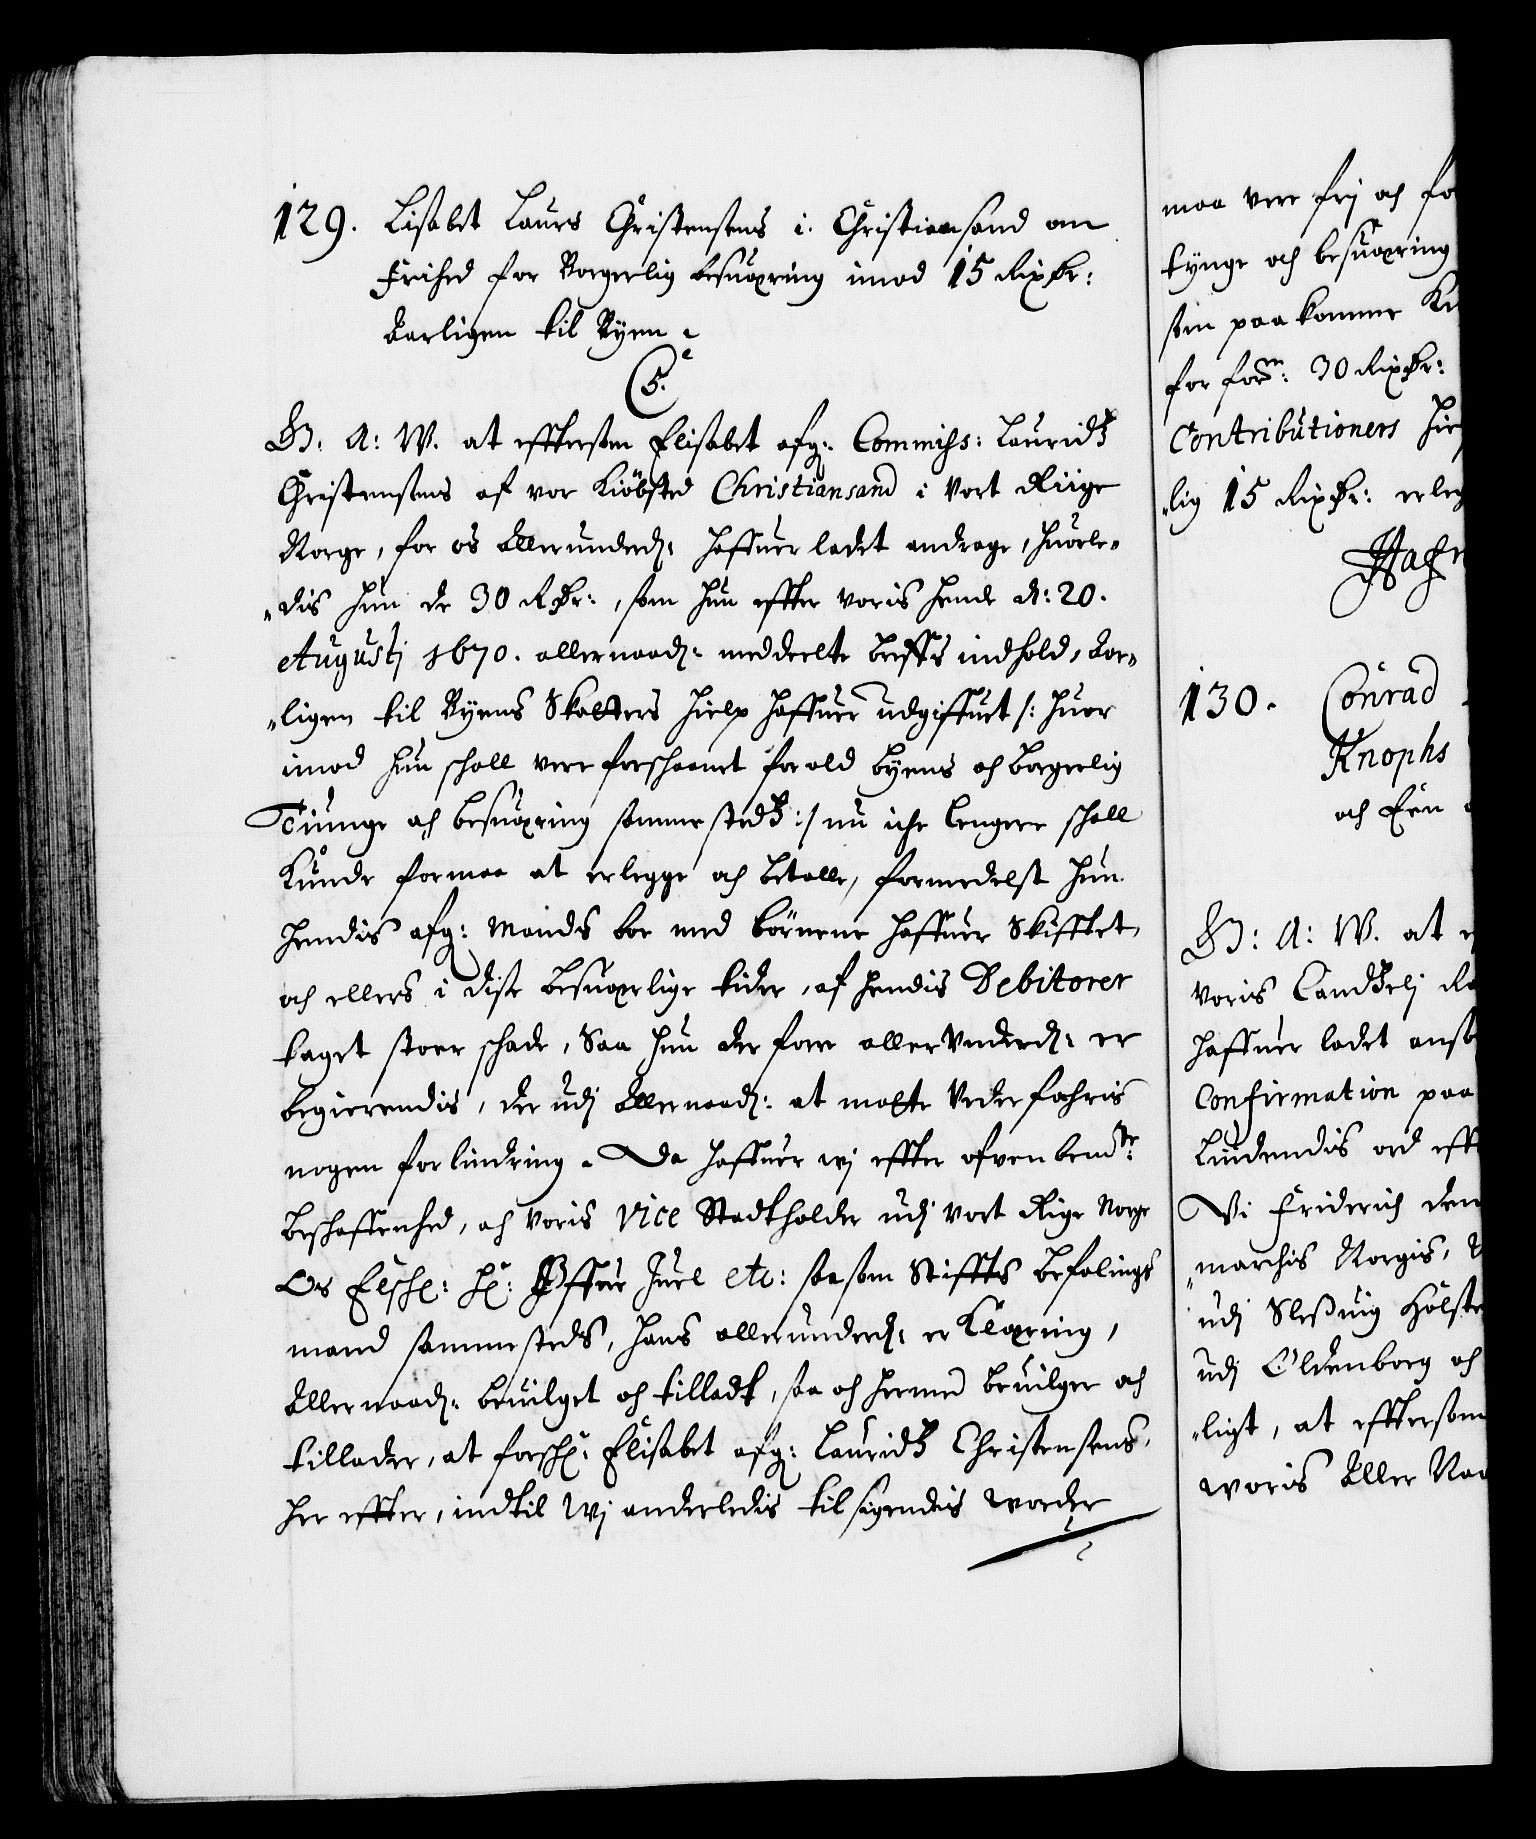 129. Lisabet Laurs Christensens i. Christiansand om
Frihed for Borgerlig besuæring imod 15 Rixdr:
Aarligen til Byen
C5.
G. A: W. at effterson Elisabet afg: Commiss: Lauridtz
Christensens af vor Kiöbsted Christiansand i Vort Riige
Norge, for os Allerunderd: haffuer ladet andrage, huorle-
-dis hun de 30 Rdr:, som hun effter voris hende d: 20.
Augustj 1670. allernaad: meddeelte breffs indhold, Aar-
-ligen til Byens Skatters hielp haffuer udgiffuet /: huor
imod hun schall vere forschaanet for ald byens och borgerlig
Tiunge och besuæring sammestedtz :/ nu iche lengere schall
Kunde formaa at erlegge och betalle, formedelst hun
hendis afg: Mands boe med börnene haffuer Skifftet,
och ellers i disse besuærlige tider, af hendis Debitorer
taget stoer schade, Saa hun der fore aller Underd: er
begierendis, der udj Allernaad: at motte Vederfahris
nogen forlindring. Da haffuer wj effter ofvenbemte:
beschaffenhed, och Voris Vice Stadtholder udj Vort Rige Norge
Os Elsch: H: Offue Juel etc: saasom Stiffts befalings
mand sammesteds, hans allerunderd: erKlæring,
Allernaad: beuilget och tilladt, saa och hermed beuilger och
tillader, at forsch: Elisabet afg: Lauridtz Christensens,
her effter, indtil Wj anderledis tilsigendis worder
maa vere frj och
tynge och besuæring
som paakomme
for form: 30 Rixdr:
Contributioners
-lig 15 Rixdr:
130. Conrad
Knophs
och Een
G: A: W. at
Voris
haffuer ladet
Confirmation paa
Liudendis ord
Vi Friderich den
marchis Norgis,
udj Slesvig
udj Oldenborg och
-ligt, at efftersom
woris Aller